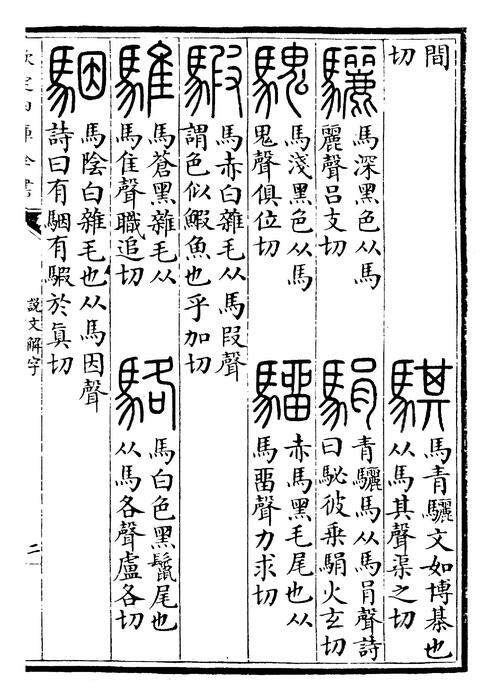 間
切
騏
馬青驪文如博棊也
从馬其聲渠之切
驪
馬深黑色从馬
麗聲呂支切
駽
青驪馬从馬肙聲詩
曰駜彼乗駽火玄切
騩
馬淺黑色从馬
鬼聲俱位切
騮
赤馬黑毛尾也从
馬畱聲力求切
騢
馬赤白雜毛从馬叚聲
謂色似鰕魚也乎加切
騅
馬蒼黑雜毛从
馬隹聲職追切
駱
馬白色黑鬛尾也
从馬各聲盧各切
駰
馬陰白雜毛也从馬因聲
詩曰有駰有騢於真切
欽定四庫全書
說文解字
二